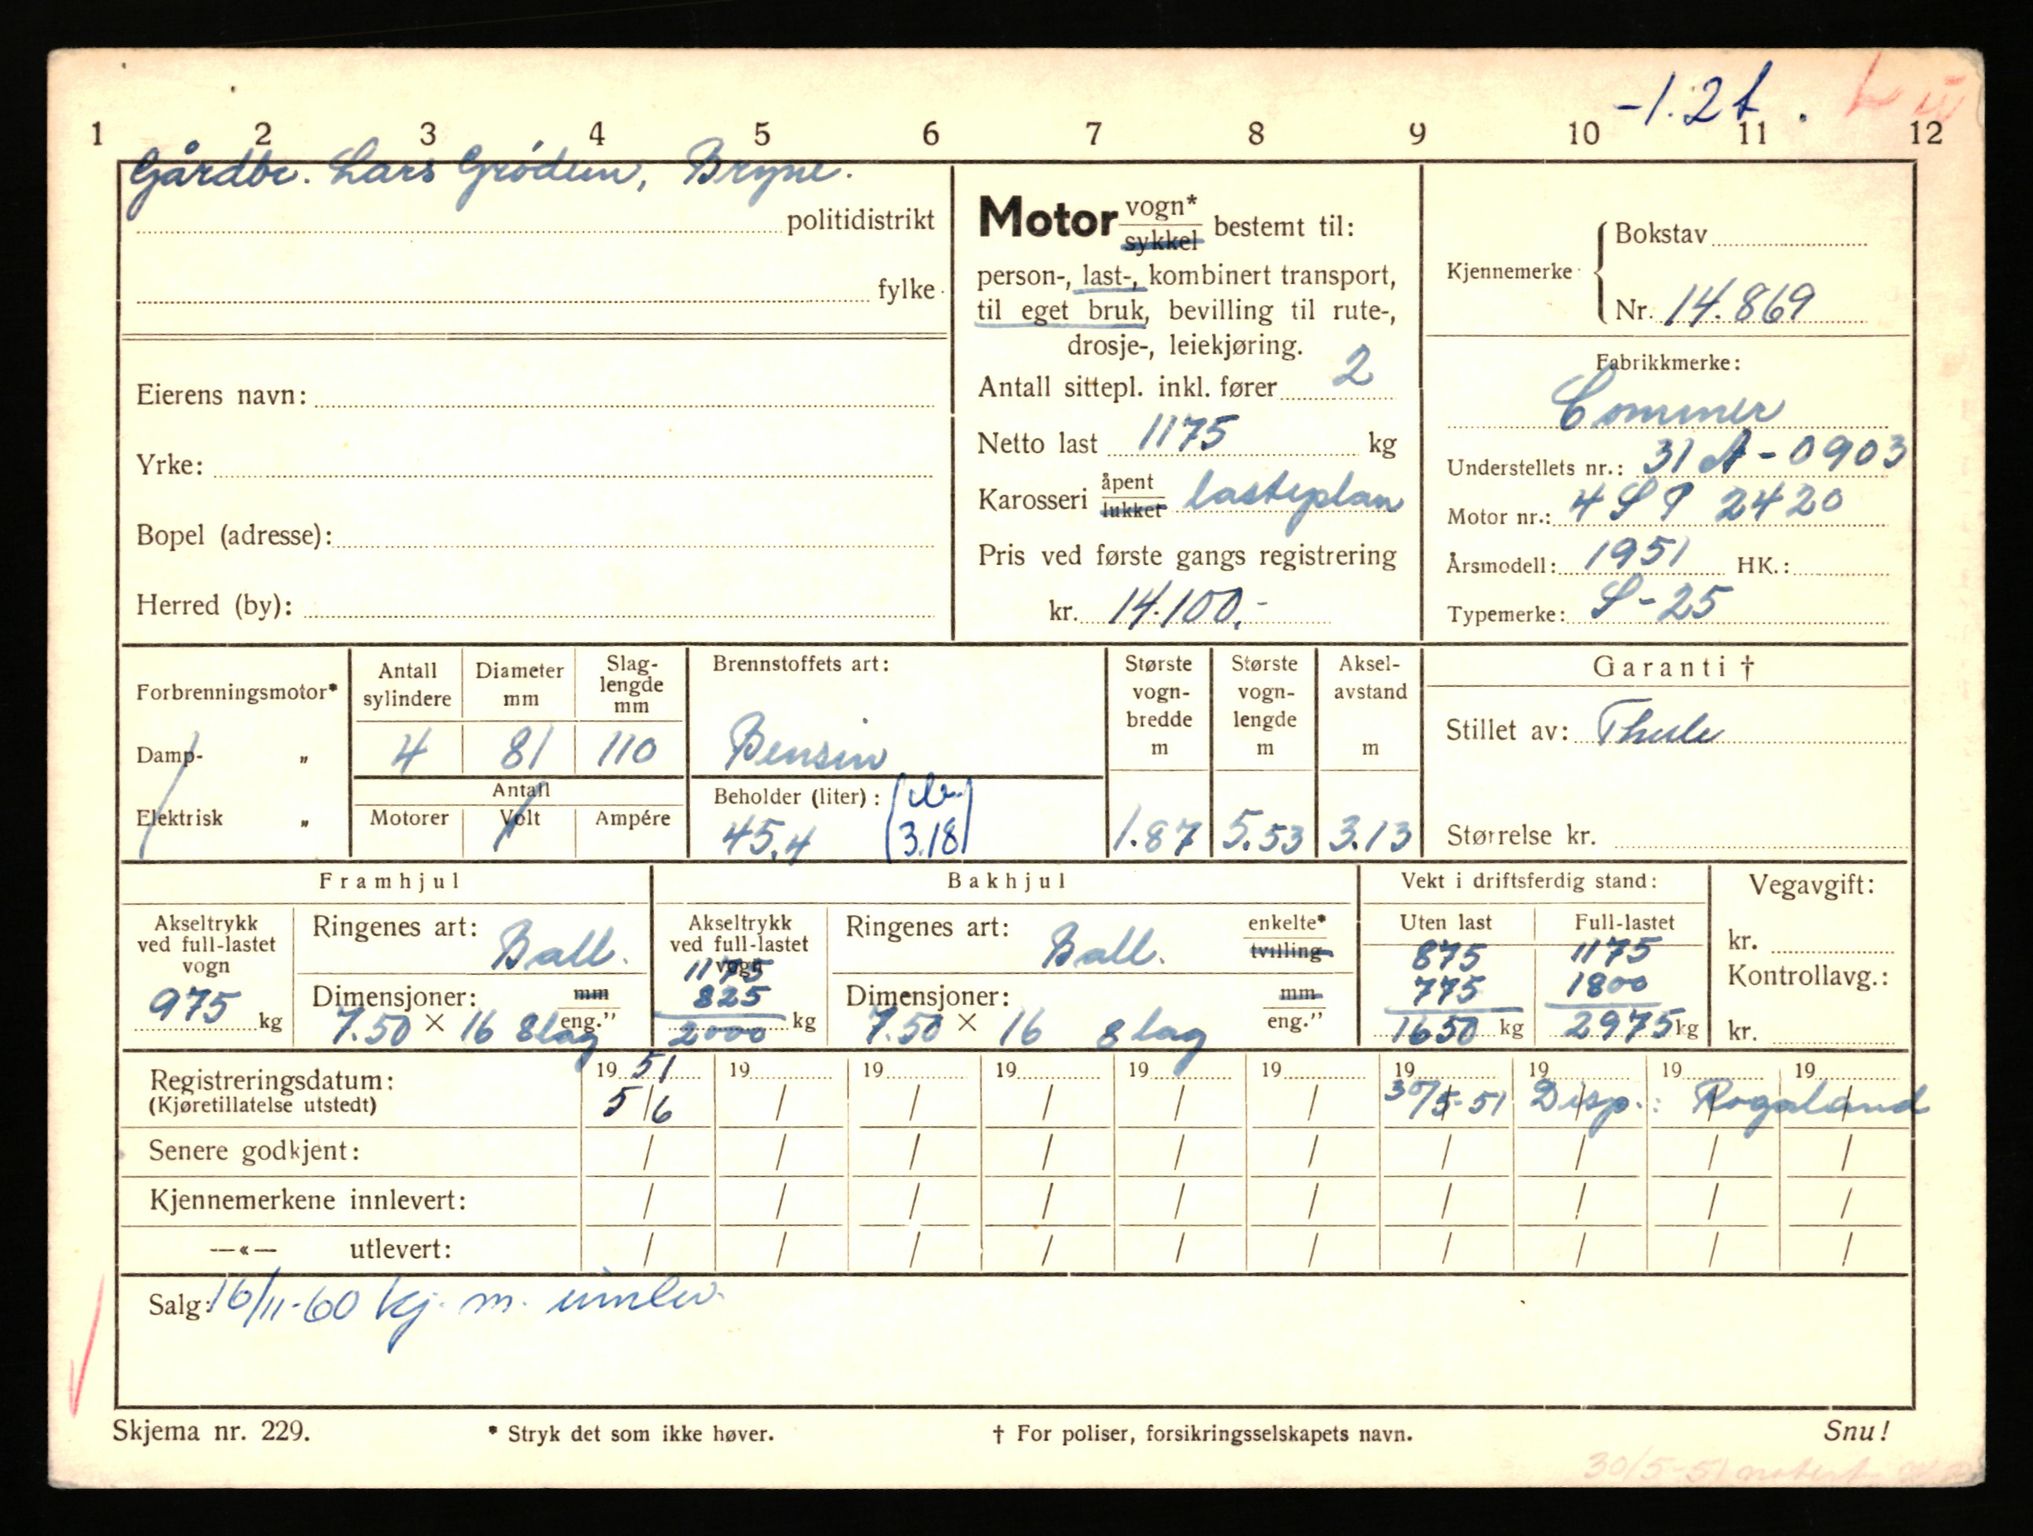 -1.2t.
1 2 3 4 5 6 7 8 9 10 11 12
Gårdbr. Lars Grødem, Bryne.
politidistrikt
fylke
Eierens navn:
Yrke:
Bopel (adresse):
Herred (by):
Motor vogn* sykkel bestemt til:
person-, last-, kombinert transport,
til eget bruk, bevilling til rute-,
drosje-, leiekjøring.
Antall sittepl. inkl. fører 2
Netto last 1175 kg
Karosseri åpent lukket lasteplan
Pris ved første gangs registrering
kr. 14.100.-
Kjennemerke
Bokstav
Nr. 14.869
Fabrikkmerke:
Commer
Understellets nr.: 31 A-0903
Motor nr.: 4 S P 2420
Årsmodell: 1951 HK.:
Typemerke: S-25
Forbrenningsmotor*
Damp- „
Elektrisk „
Antall sylindere 4
Diameter mm 81
Slag-lengde mm 110
Antall
Motorer Volt Ampére
Brennstoffets art:
Bensin
Beholder (liter):
45.4
3.18
Største vogn-bredde m 1.87
Største vogn-lengde m 5.53
Aksel-avstand m 3.13
Garanti †
Stillet av: Thule
Størrelse kr.
Framhjul
Akseltrykk ved full-lastet vogn
975 kg
Ringenes art: Ball.
Dimensjoner: mm eng."
7.50 × 16 8 lag
Bakhjul
Akseltrykk ved full-lastet vogn
1175
825
2000 kg
Ringenes art: Ball. enkelte* tvilling
Dimensjoner: mm eng."
7.50 × 16 8 lag
Vekt i driftsferdig stand:
Uten last Full-lastet
875 1175
775 1800
1650 kg 2975 kg
Vegavgift:
kr.
Kontrollavg.:
kr.
Registreringsdatum: 19 51 19 19 19 19 19 19 19 19 19
(Kjøretillatelse utstedt) 5/6 / / / / / 30/5-51 Disp.: Rogaland
Senere godkjent: / / / / / / / / / /
Kjennemerkene innlevert: / / / / / / / / / /
—«— utlevert: / / / / / / / / / /
Salg: 16/11-60 kj. m. innlev.
Skjema nr. 229.
* Stryk det som ikke høver.
† For poliser, forsikringsselskapets navn.
Snu!
30/5-51 notert